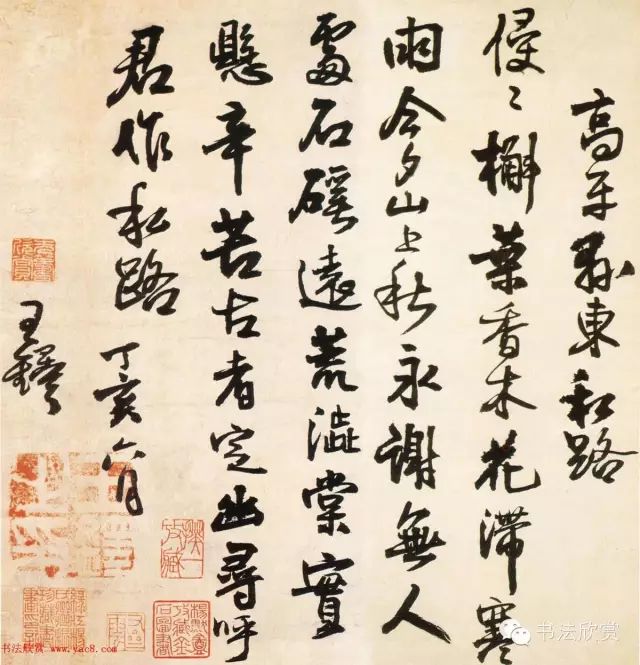 高平縣東私路
侵〻槲葉香木花滯寒
雨今夕山上秋永謝無人
處石磎遠荒澁棠實
懸辛苦古者定幽尋呼
君作私路
丁亥六月
王鐸
书法欣赏
书法欣赏 www.yac8.com